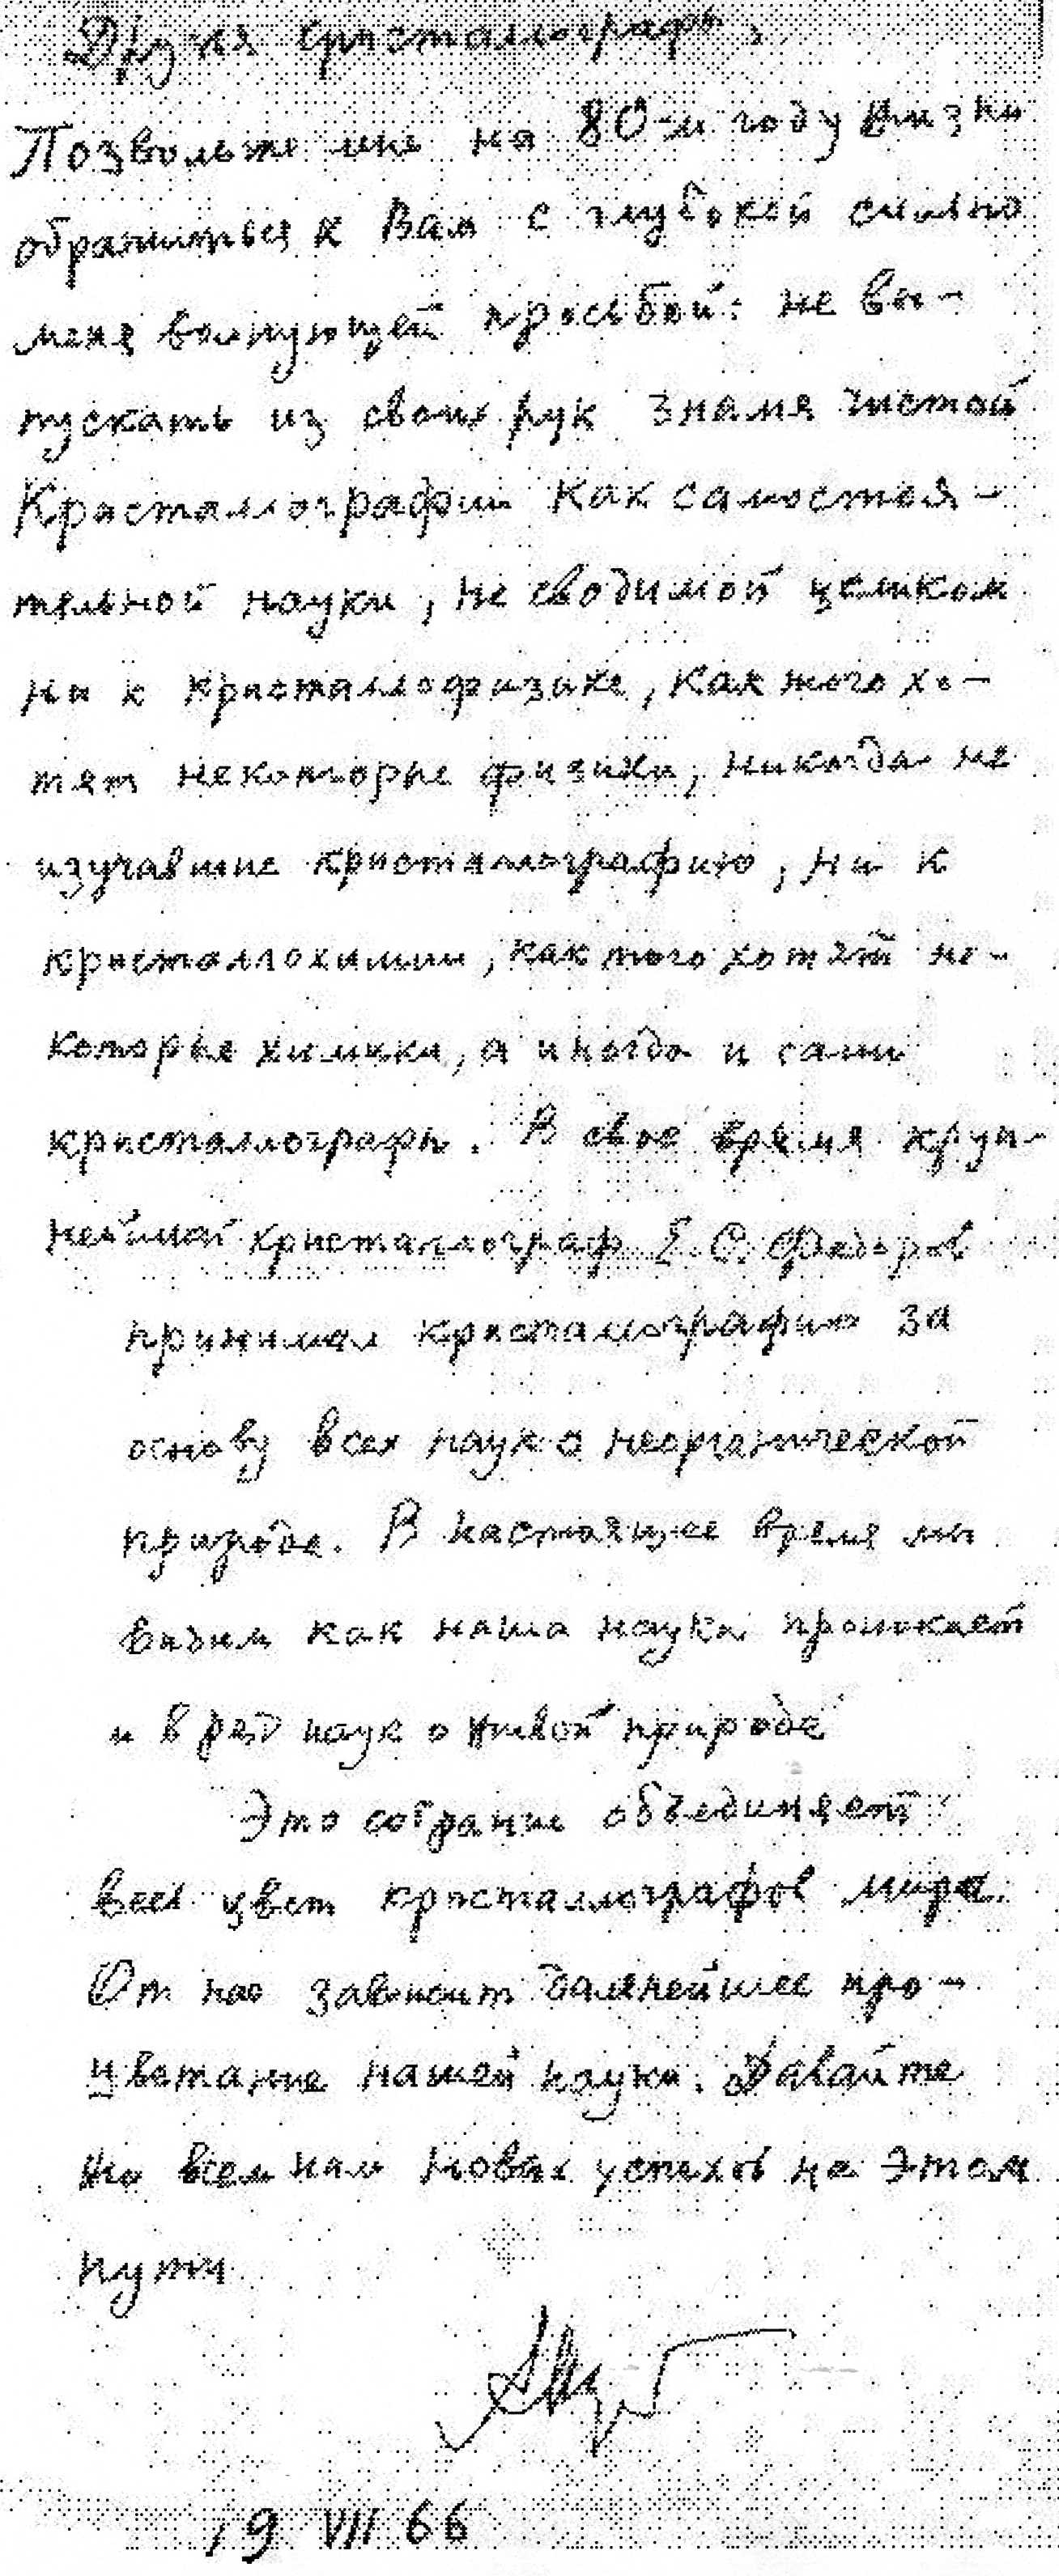 Друзья кристаллографы,
Позвольте мне на 80-м году жизни
обратиться к Вам с глубокой сильно
меня волнующей просьбой: не вы-
пускать из своих рук знамя чистой
Кристаллографии как самостоя-
тельной науки, не сводимой целиком
ни к кристаллофизике, как того хо-
тят некоторые физики, никогда не
изучавшие кристаллографию, ни к
кристаллохимии, как того хотят не-
которые химики, а иногда и сами
кристаллографы. В свое время круп-
нейший кристаллограф Е. С. Федоров
принимал кристаллографию за
основу всех наук о неорганической
природе. В настоящее время мы
видим как наша наука проникает
и в ряд наук о живой природе
Это собрание объединяет
весь цвет кристаллографов мира.
От нас зависит дальнейшее про-
цветание нашей науки. Давайте
всем нам новых успехов на этом
пути
19 VII 66